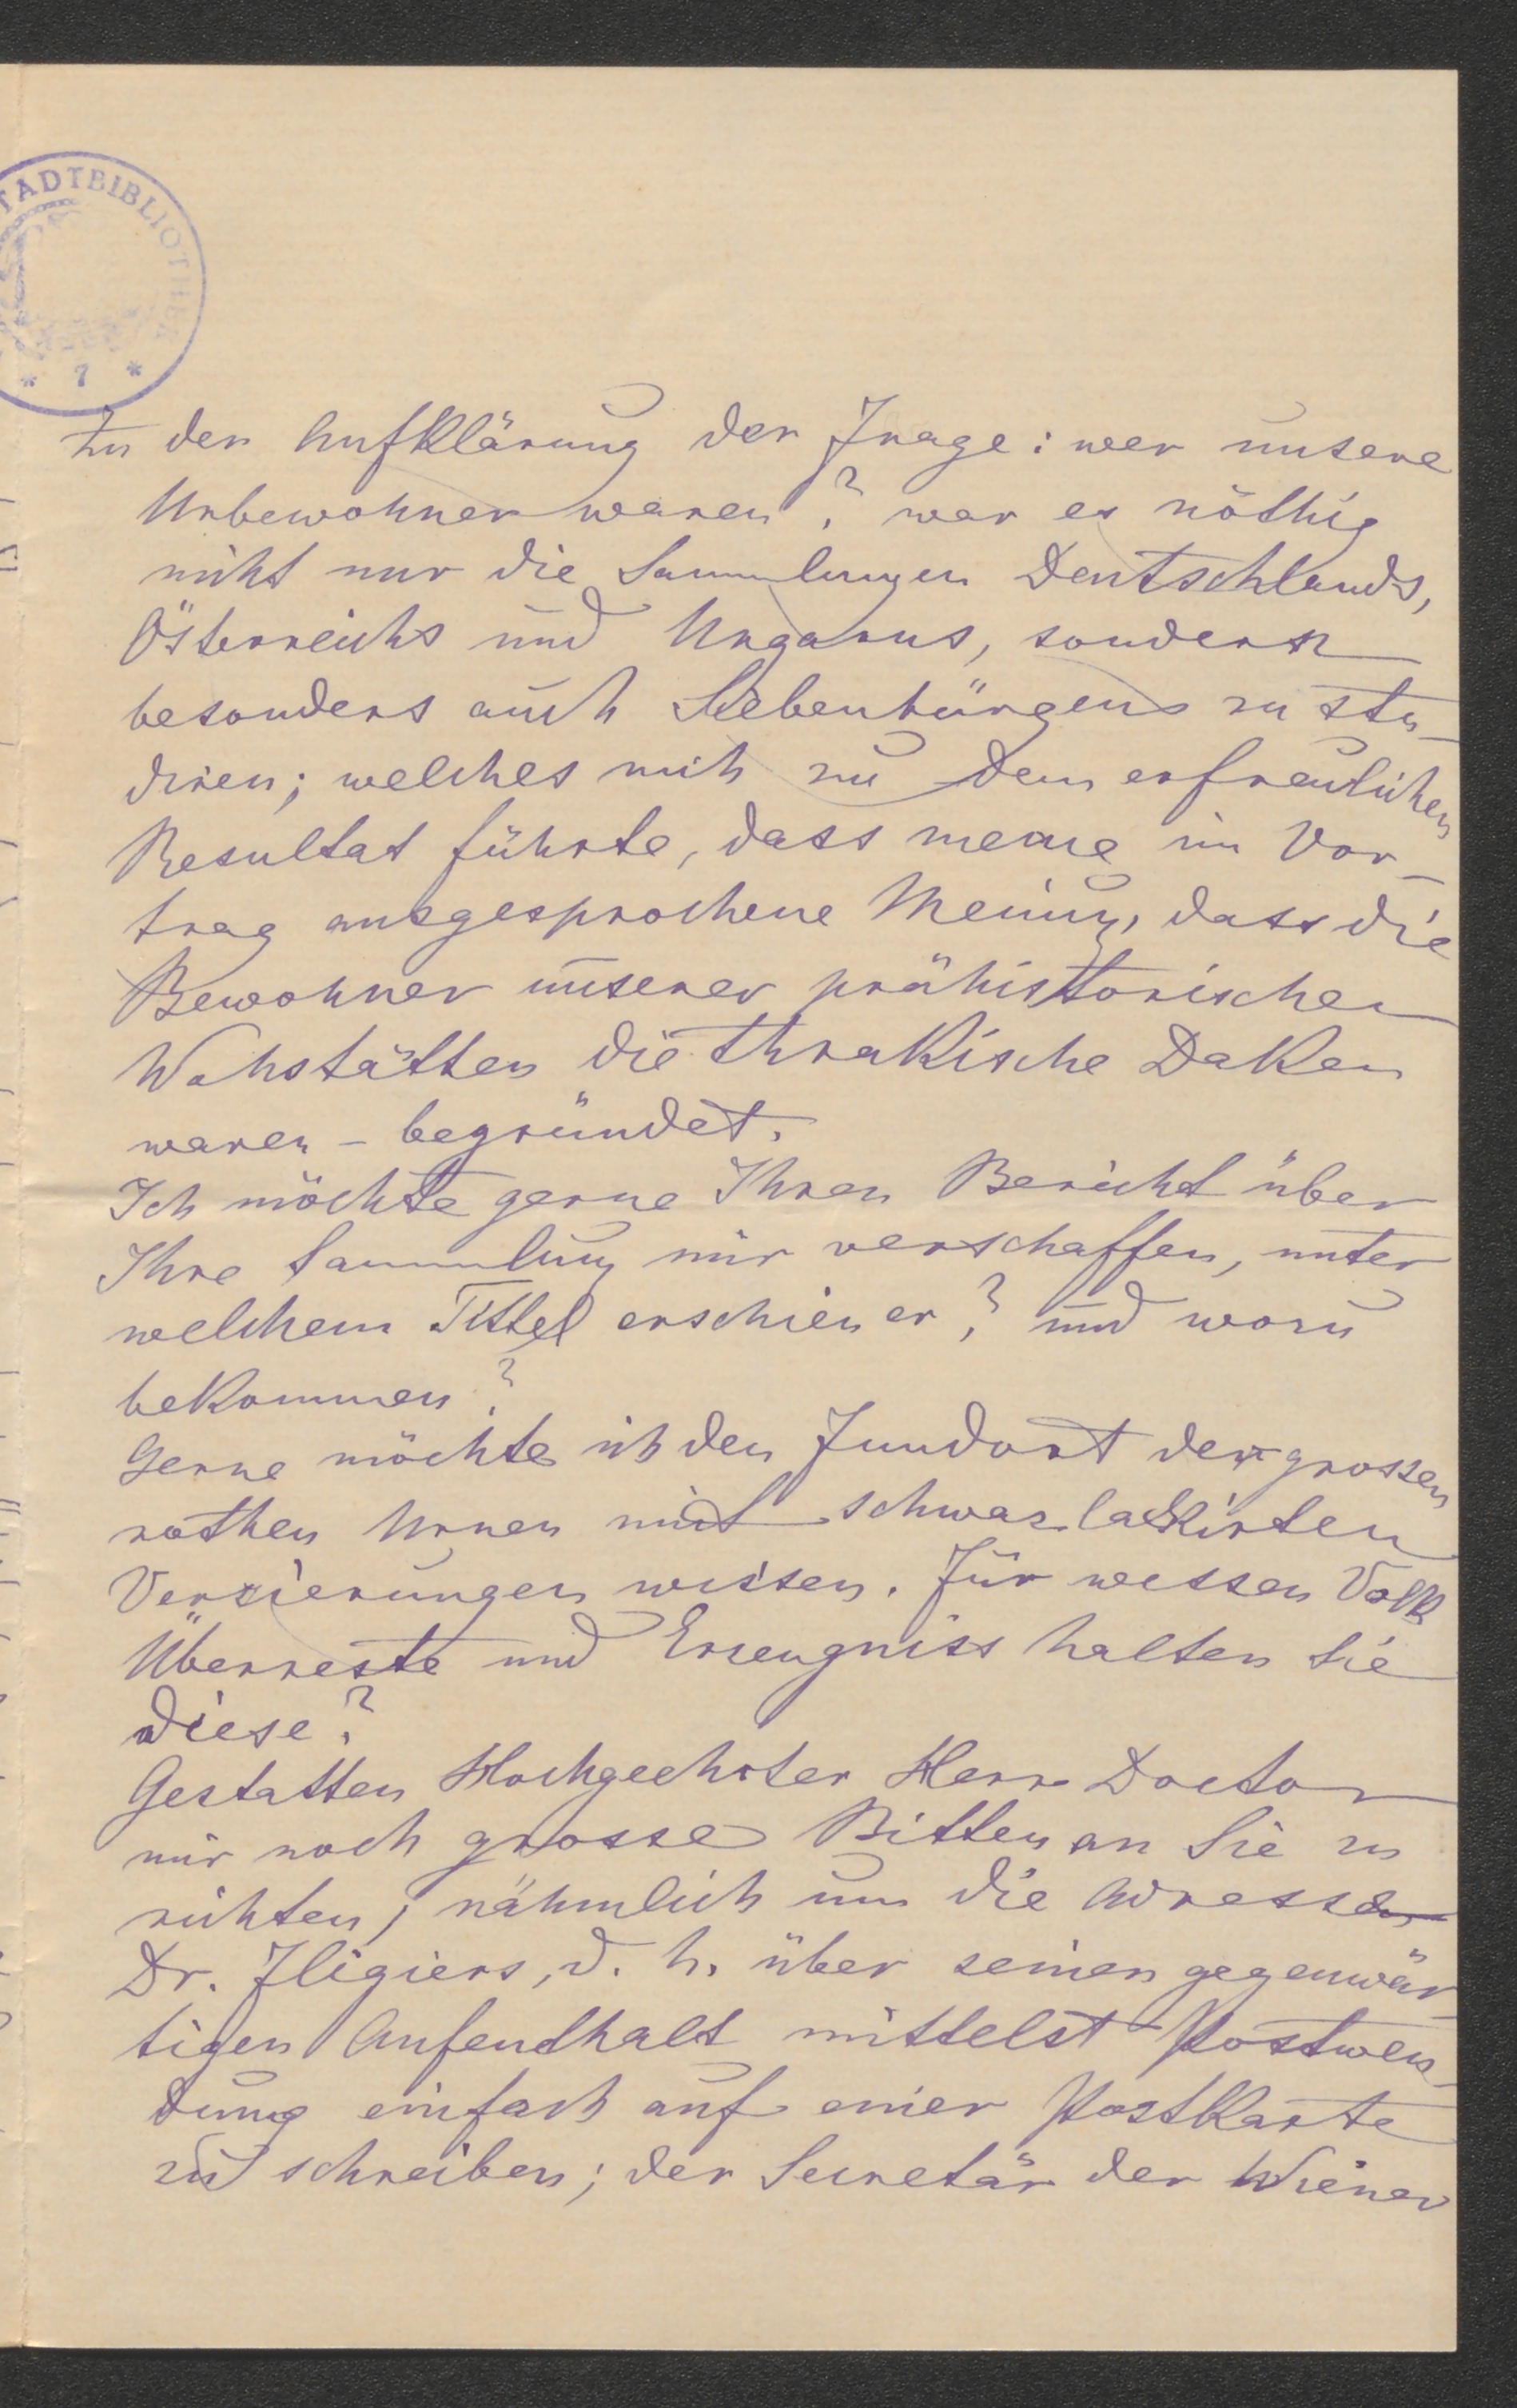 TADTBIBLIOTHEK
* 7 *
Zu der Aufklärung der Frage: wer unsere
Urbewohner waren? war es nöthig
nicht nur die Sammlungen Deutschlands,
Österreichs und Ungarns, sondern
besonders auch Siebenbürgens zu stu-
diren; welches mich zu dem erfreulichen
Resultat führte, dass meine im Vor-
trag ausgesprochene Meinug, dass die
Bewohner unserer prähistorischen
Wohstätten die thrakische Daken
waren - begründet.
Ich möchte gerne Ihren Bericht über
Ihre Sammlung mir verschaffen, unter
welchem Tittel erschien er? und wo zu
bekommen?
Gerne möchte ich den Fundort der grossen
rothen Urnen mit schwarz lackirten
Verzierungen wissen. Für wessen Volk
Überreste und Erzeugniss halten Sie
diese?
Gestatten Hochgeehrter Herr Doctor
mir noch grosse Bitten an Sie zu
richten, nähmlich um die Adresse
Dr. Fligiers, d. h. über seinen gegenwär-
tigen Aufendhalt mittelst Postwen-
dung einfach auf einer Postkarte
zu schreiben; der Secretär der Wiener